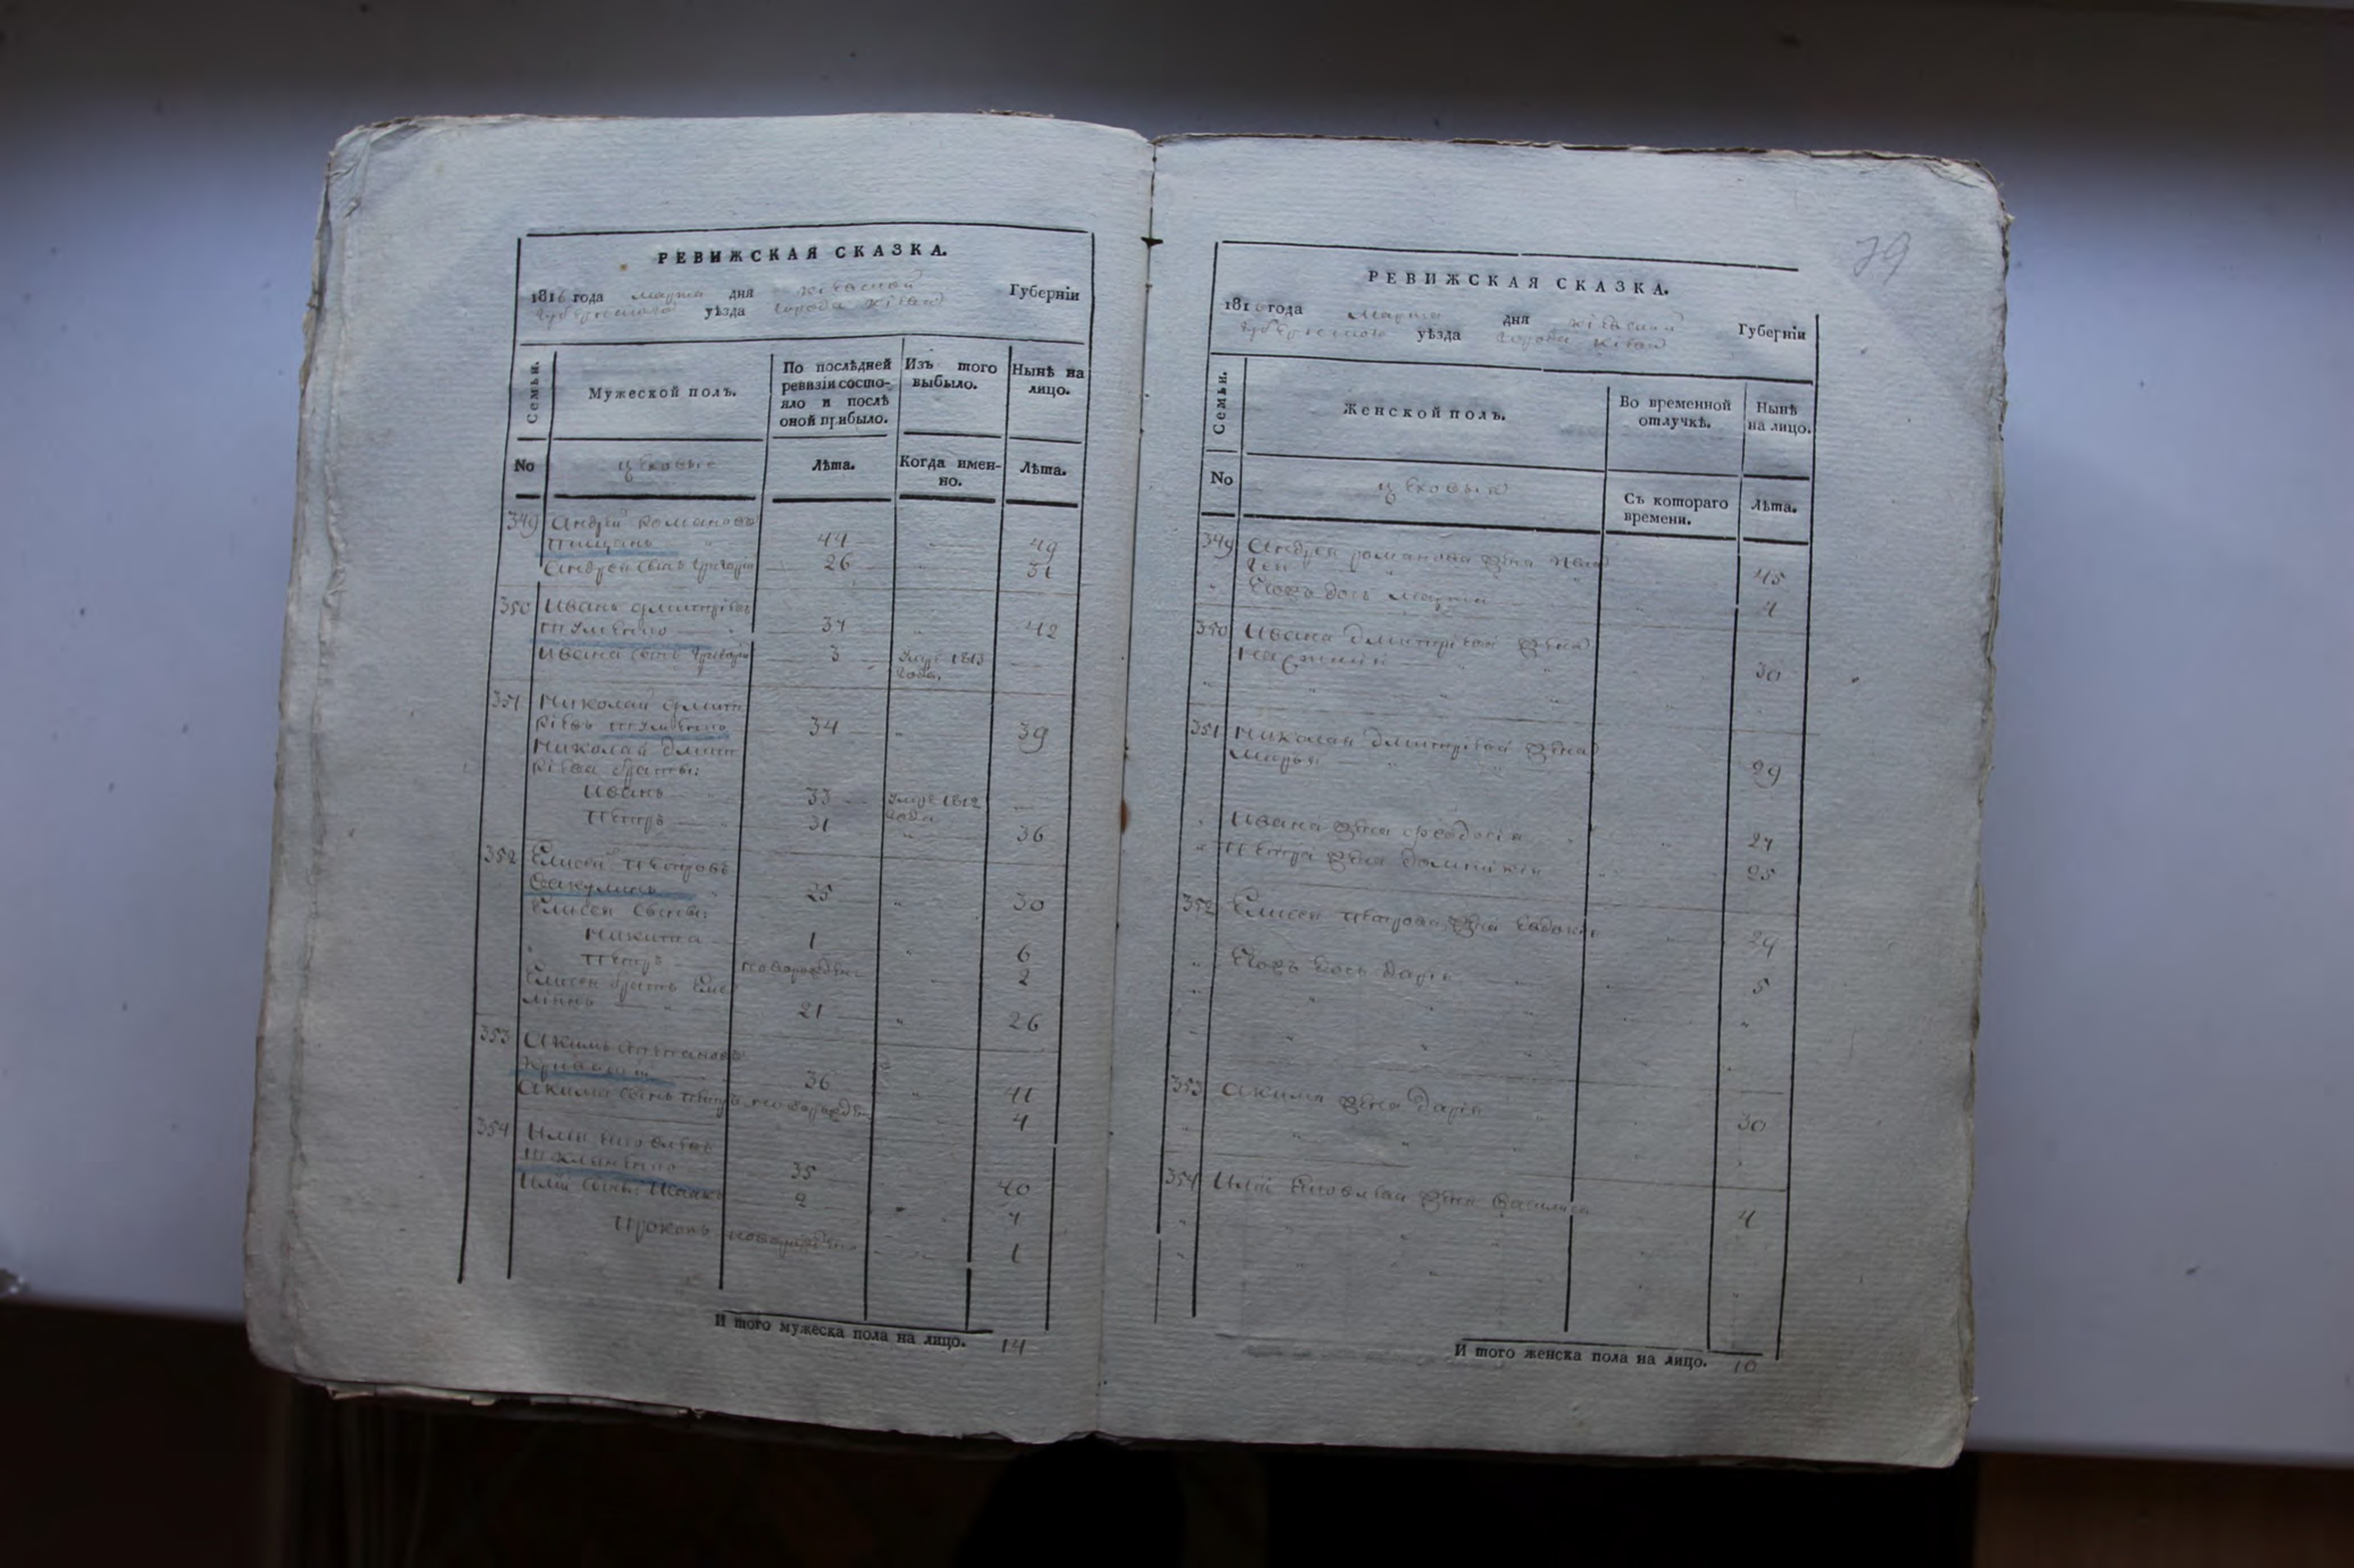 РЕВИЖСКАЯ СКАЗКА.
1816 года марта дня Кіевской Губерніи
Губернского уѣзда города Кіева
Семьи. Мужеской полъ. По послѣдней ревизіи состояло и послѣ оной прибыло. Изъ того выбыло. Нынѣ на лицо.
No цеховые Лѣта. Когда именно. Лѣта.
349 Андрей Романовъ
44 49
Андрея сынъ Григорій 26 31
350 Иванъ Дмитріевъ
37 42
Ивана сынъ Григорій 3 Умре 1813 года.
351 Николай Дмит
ріевъ 34 39
Николая Дмит
ріева братья:
Иванъ 33 Умре 1812 года
Петръ 31 36
352 Елисей Петровъ
25 30
Елисея сыны:
Никита 1 6
Петръ новорожден 2
Елисея братъ Еме
ліянъ 21 26
353 Акимъ Степановъ
36 41
Акима сынъ Петръ новорожден 4
354 Илія Яковлевъ
35 40
Иліи сыны: Исаакъ 2 7
Прокопъ новорожден 1
И того мужеска пола на лицо. 14
79
РЕВИЖСКАЯ СКАЗКА.
1816 года марта дня Кіевской Губерніи
Губернского уѣзда города Кіева
Семьи. Женской полъ. Во временной отлучкѣ. Нынѣ на лицо.
No цеховыя Съ котораго времени. Лѣта.
349 Андрея Романова жена
45
Ихъ дочь Марія 4
350 Ивана Дмитріева жена
30
351 Николая Дмитріева жена
Марья 29
Ивана жена Феодосія 27
Петра жена 25
352 Елисея Петрова жена Евдокія 29
Ихъ дочь Дарія 5
353 Акима жена Дарія 30
354 Иліи Яковлева жена Василиса 4
И того женска пола на лицо. 10